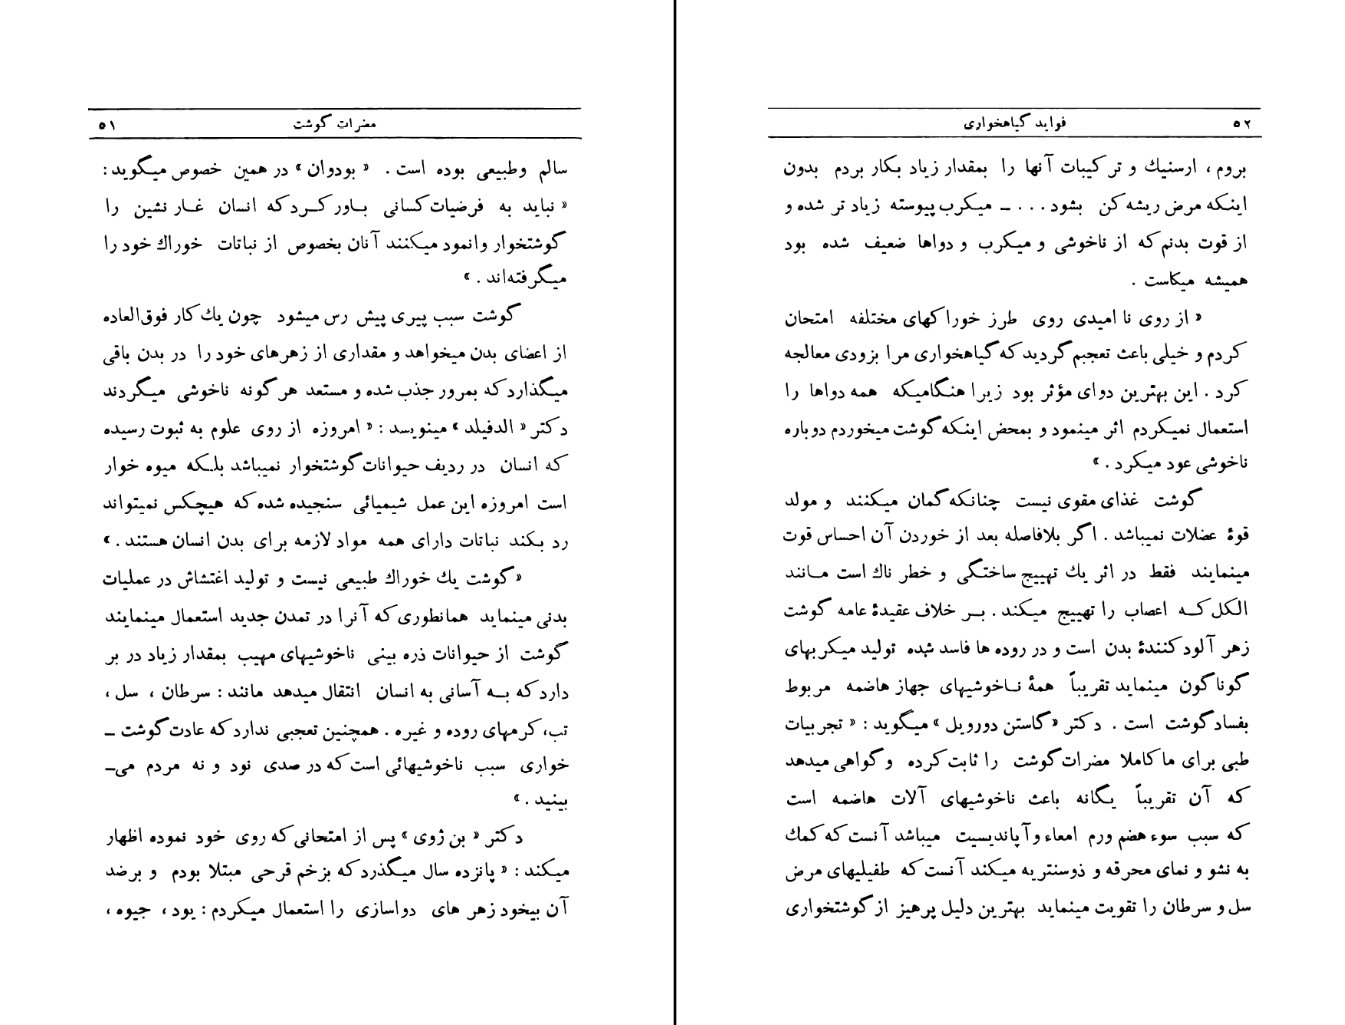 مضرات گوشت ۵۱
سالم وطبیعی بوده است . « بودوان » در همین خصوص میگوید :
« نباید به فرضیات کسانی باور کرد که انسان غار نشین را
گوشتخوار وانمود میکنند آنان بخصوص از نباتات خوراك خود را
میگرفته‌اند . »
گوشت سبب پیری پیش رس میشود چون یك کار فوق‌العاده
از اعضای بدن میخواهد و مقداری از زهرهای خود را در بدن باقی
میگذارد که بمرور جذب شده و مستعد هر گونه ناخوشی میگردند
دکتر « الدفیلد » مینویسد : « امروزه از روی علوم به ثبوت رسیده
که انسان در ردیف حیوانات گوشتخوار نمیباشد بلکه میوه خوار
است امروزه این عمل شیمیائی سنجیده شده که هیچکس نمیتواند
رد بکند نباتات دارای همه مواد لازمه برای بدن انسان هستند . »
« گوشت یك خوراك طبیعی نیست و تولید اغتشاش در عملیات
بدنی مینماید همانطوری که آنرا در تمدن جدید استعمال مینمایند
گوشت از حیوانات ذره بینی ناخوشیهای مهیب بمقدار زیاد در بر
دارد که به آسانی به انسان انتقال میدهد مانند : سرطان ، سل ،
تب، کرمهای روده و غیره . همچنین تعجبی ندارد که عادت گوشت ـ
خواری سبب ناخوشیهائی است که در صدی نود و نه مردم می‌ـ
بینید . »
دکتر « بن ژوی » پس از امتحانی که روی خود نموده اظهار
میکند : « پانزده سال میگذرد که بزخم قرحی مبتلا بودم و برضد
آن بیخود زهر های دواسازی را استعمال میکردم : یود ، جیوه ،
۵۲ فواید گیاهخواری
بروم ، ارسنیك و ترکیبات آنها را بمقدار زیاد بکار بردم بدون
اینکه مرض ریشه کن بشود . . . ـ میکرب پیوسته زیاد تر شده و
از قوت بدنم که از ناخوشی و میکرب و دواها ضعیف شده بود
همیشه میکاست .
« از روی نا امیدی روی طرز خوراکهای مختلفه امتحان
کردم و خیلی باعث تعجبم گردید که گیاهخواری مرا بزودی معالجه
کرد . این بهترین دوای مؤثر بود زیرا هنگامیکه همه دواها را
استعمال نمیکردم اثر مینمود و بمحض اینکه گوشت میخوردم دوباره
ناخوشی عود میکرد . »
گوشت غذای مقوی نیست چنانکه گمان میکنند و مولد
قوهٔ عضلات نمیباشد . اگر بلافاصله بعد از خوردن آن احساس قوت
مینمایند فقط در اثر یك تهییج ساختگی و خطر ناك است مانند
الکل که اعصاب را تهییج میکند . بر خلاف عقیدهٔ عامه گوشت
زهر آلود کنندهٔ بدن است و در روده ها فاسد شده تولید میکربهای
گوناگون مینماید تقریباً همهٔ ناخوشیهای جهاز هاضمه مربوط
بفساد گوشت است . دکتر « گاستن دورویل » میگوید : « تجربیات
طبی برای ما کاملا مضرات گوشت را ثابت کرده و گواهی میدهد
که آن تقریباً یگانه باعث ناخوشیهای آلات هاضمه است
که سبب سوء هضم ورم امعاء و آپاندیسیت میباشد آنست که کمك
به نشو و نمای محرقه و ذوسنتریه میکند آنست که طفیلیهای مرض
سل و سرطان را تقویت مینماید بهترین دلیل پرهیز از گوشتخواری